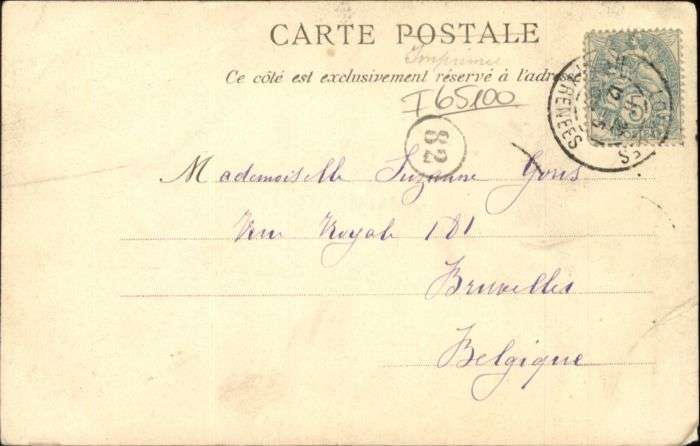 CARTE POSTALE
Imprimé
Ce côté est exclusivement réservé à l'adresse
I 65100
82
5
PYRENEES
Mademoiselle Suzanne Goris
Rue Royale 181
Bruxelles
Belgique